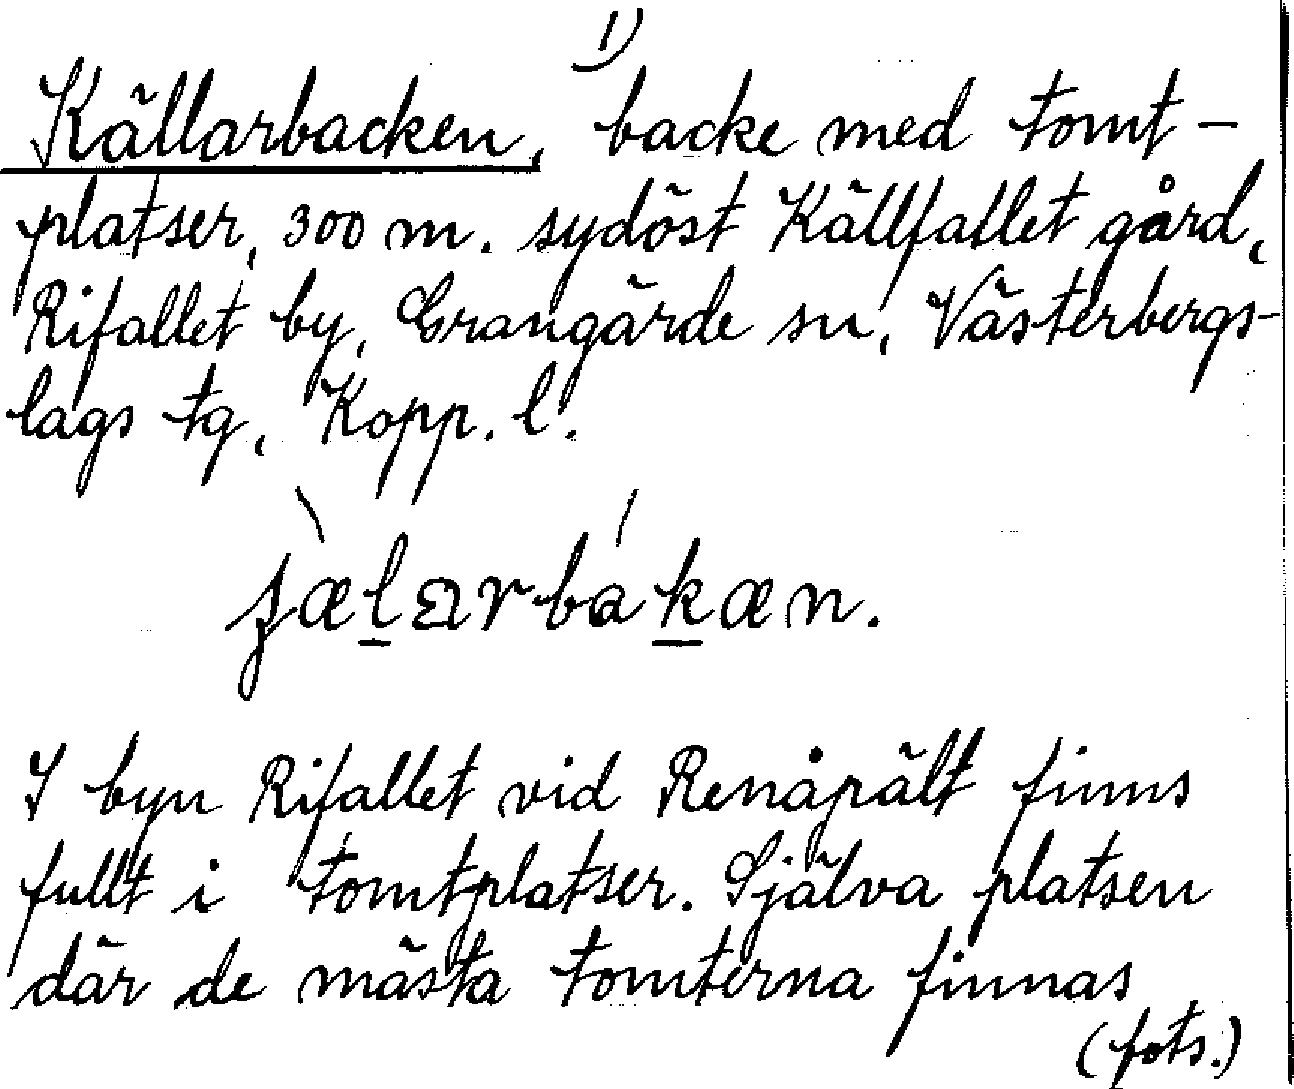 1)
Källarbacken, backe med tomt-
platser, 300 m. sydöst Källfallet gård,
Rifallet by, Grangärde sn, Västerbergs-
lags tg, Kopp. l.
I byn Rifallet vid Renåpält finns
fullt i tomtplatser. Själva platsen
där de mästa tomterna finnas
(fots.)